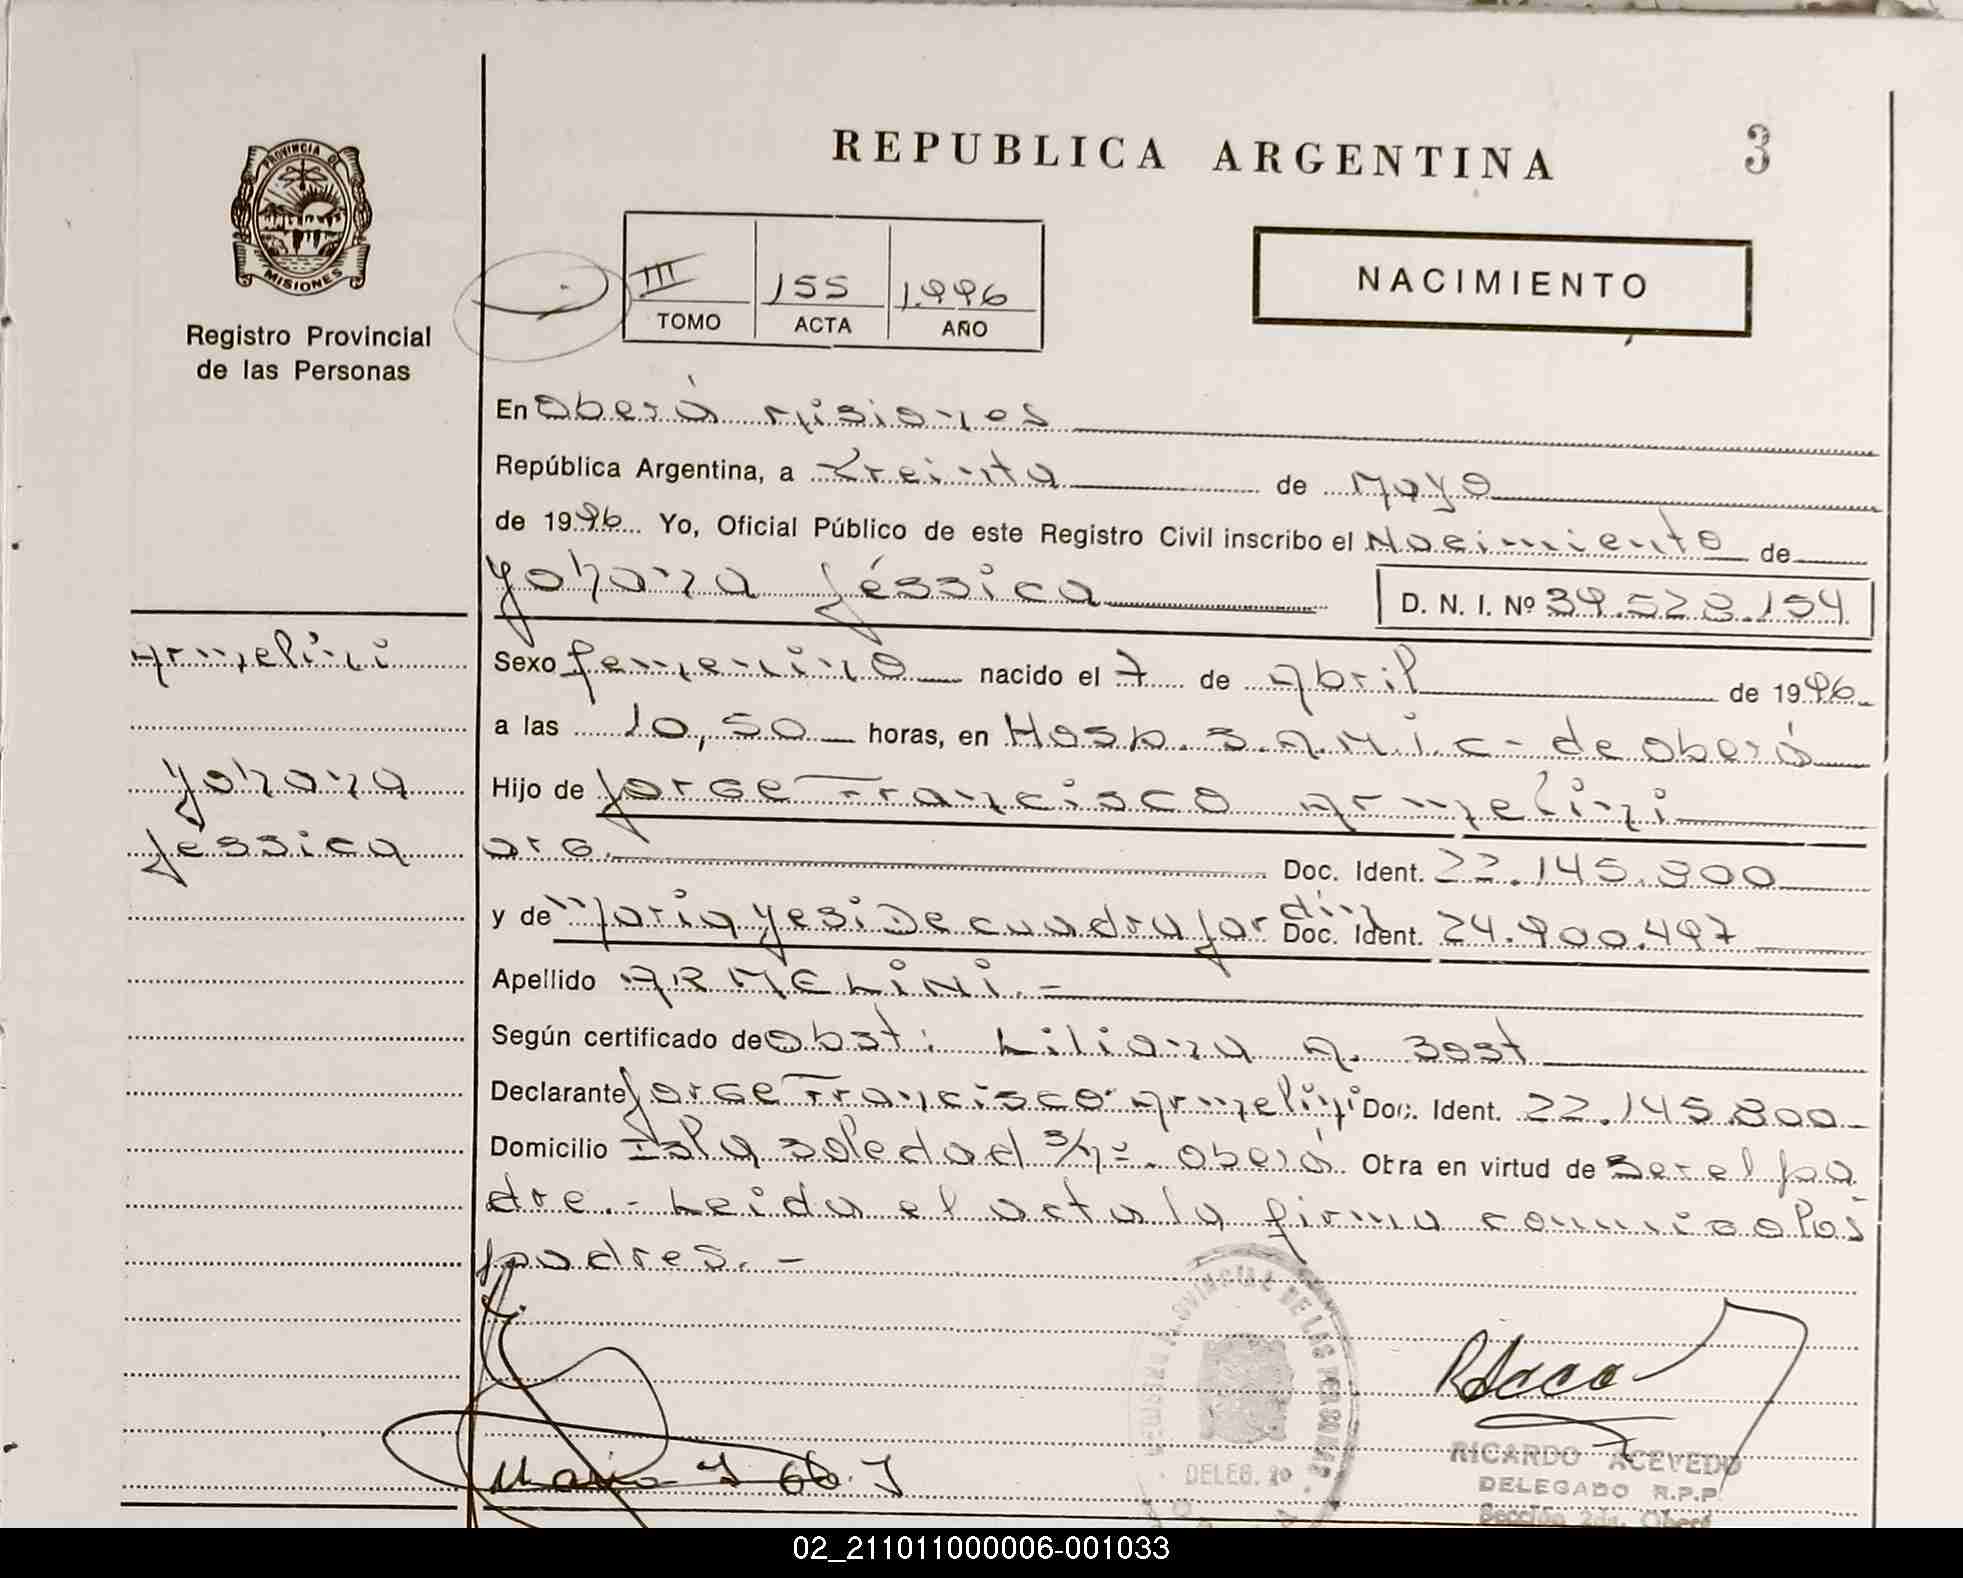 REPUBLICA ARGENTINA
3
PROVINCIA DE
MISIONES
Registro Provincial
de las Personas
III 155 1.996
TOMO ACTA AÑO
NACIMIENTO
En Oberá Misiones
República Argentina, a Treinta de Mayo
de 1996 Yo, Oficial Público de este Registro Civil inscribo el Nacimiento de
Yohana Jéssica D. N. I. Nº 39.528.154
Armelini
Sexo femenino nacido el 7 de Abril de 1996
a las 10,50 horas, en Hosp. S.A.M.i.c- de Oberá
Yohana
Hijo de Jorge Francisco Armelini
Jéssica
arg. Doc. Ident. 22.145.800
y de María Yesi De cuadra Jardin Doc. Ident. 24.900.497
Apellido ARMELiNi.-
Según certificado de Obst: Liliana A. Sost
Declarante Jorge Francisco Armelini Doc. Ident. 22.145.800
Domicilio Isla Soledad S/Nº. Oberá Obra en virtud de Ser el pa
dre.- Leida el acta la firma conmigo los
padres.-
PROVINCIAL DE LAS PERSONAS
DELEG. 2º
RICARDO ACEVEDO
DELEGADO R.P.P.
Sección 2da. Oberá
02_211011000006-001033